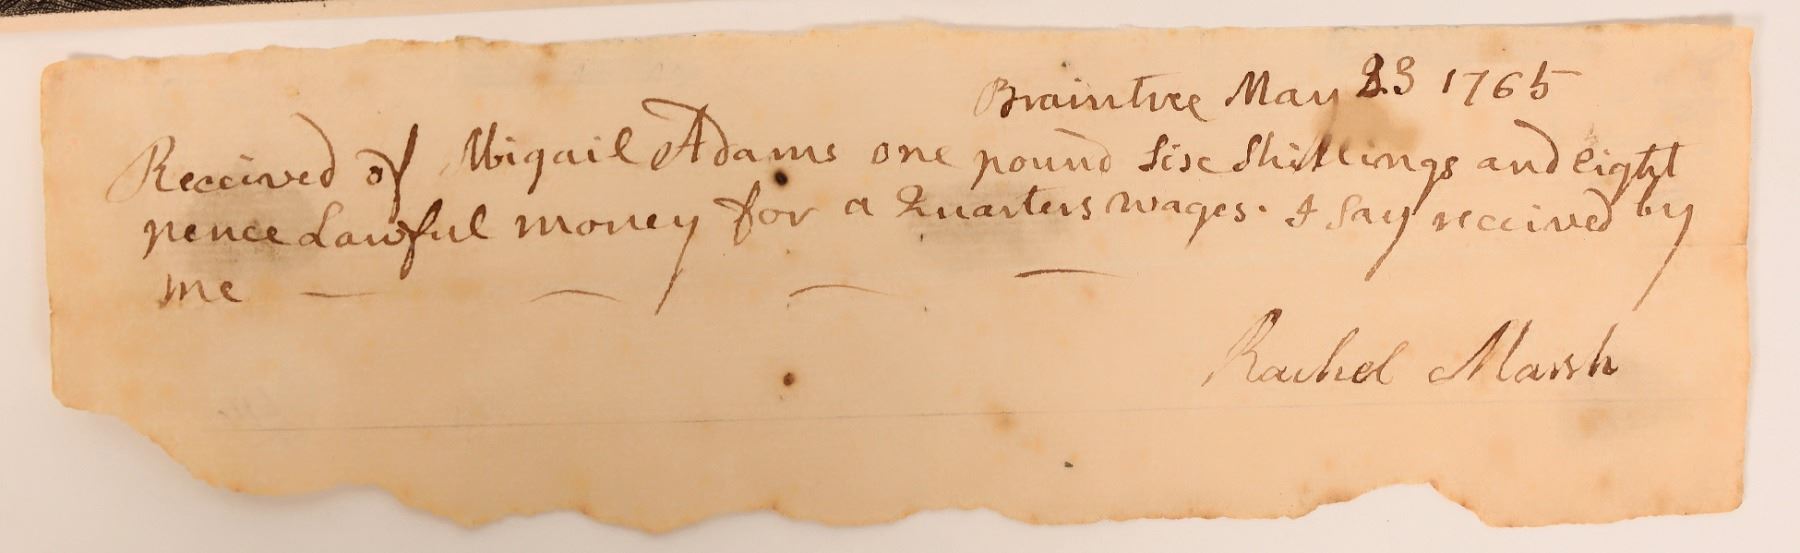 Braintree May 23 1765
Received of Abigail Adams one pound Six Shillings and Eight
pence Lawful money for a Quarters wages. I Say received by
me
Rachel Marsh